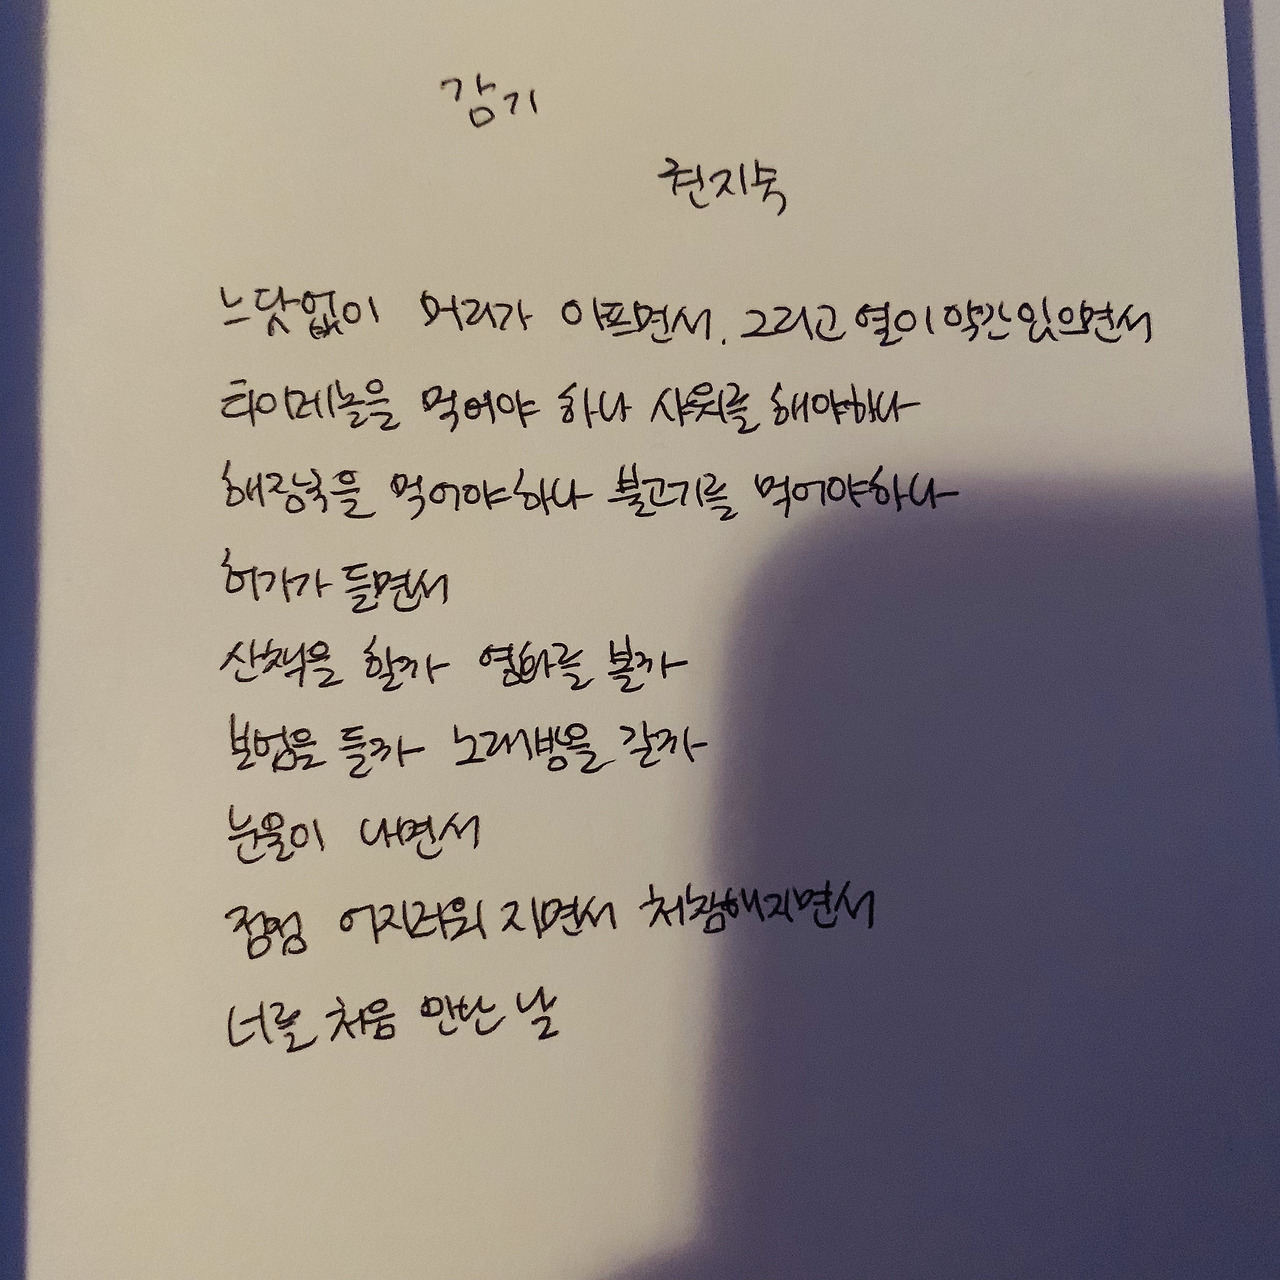 감기
권지숙
느닷없이 머리가 아프면서, 그리고 열이 약간 있으면서
타이레놀을 먹어야 하나 샤워를 해야하나
해장국을 먹어야하나 불고기를 먹어야하나
허기가 들면서
산책을 할까 영화를 볼까
보험을 들까 노래방을 갈까
눈물이 나면서
점점 어지러워 지면서 처참해지면서
너를 처음 만난 날